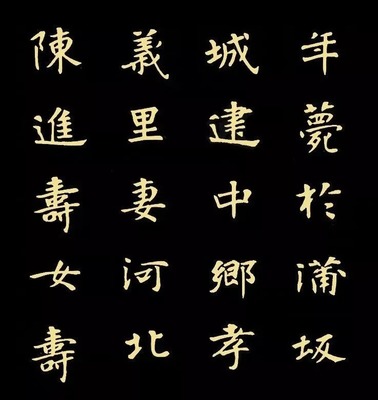 年薨於蒲坂
城建中鄉孝
義里妻河北
陳進壽女壽